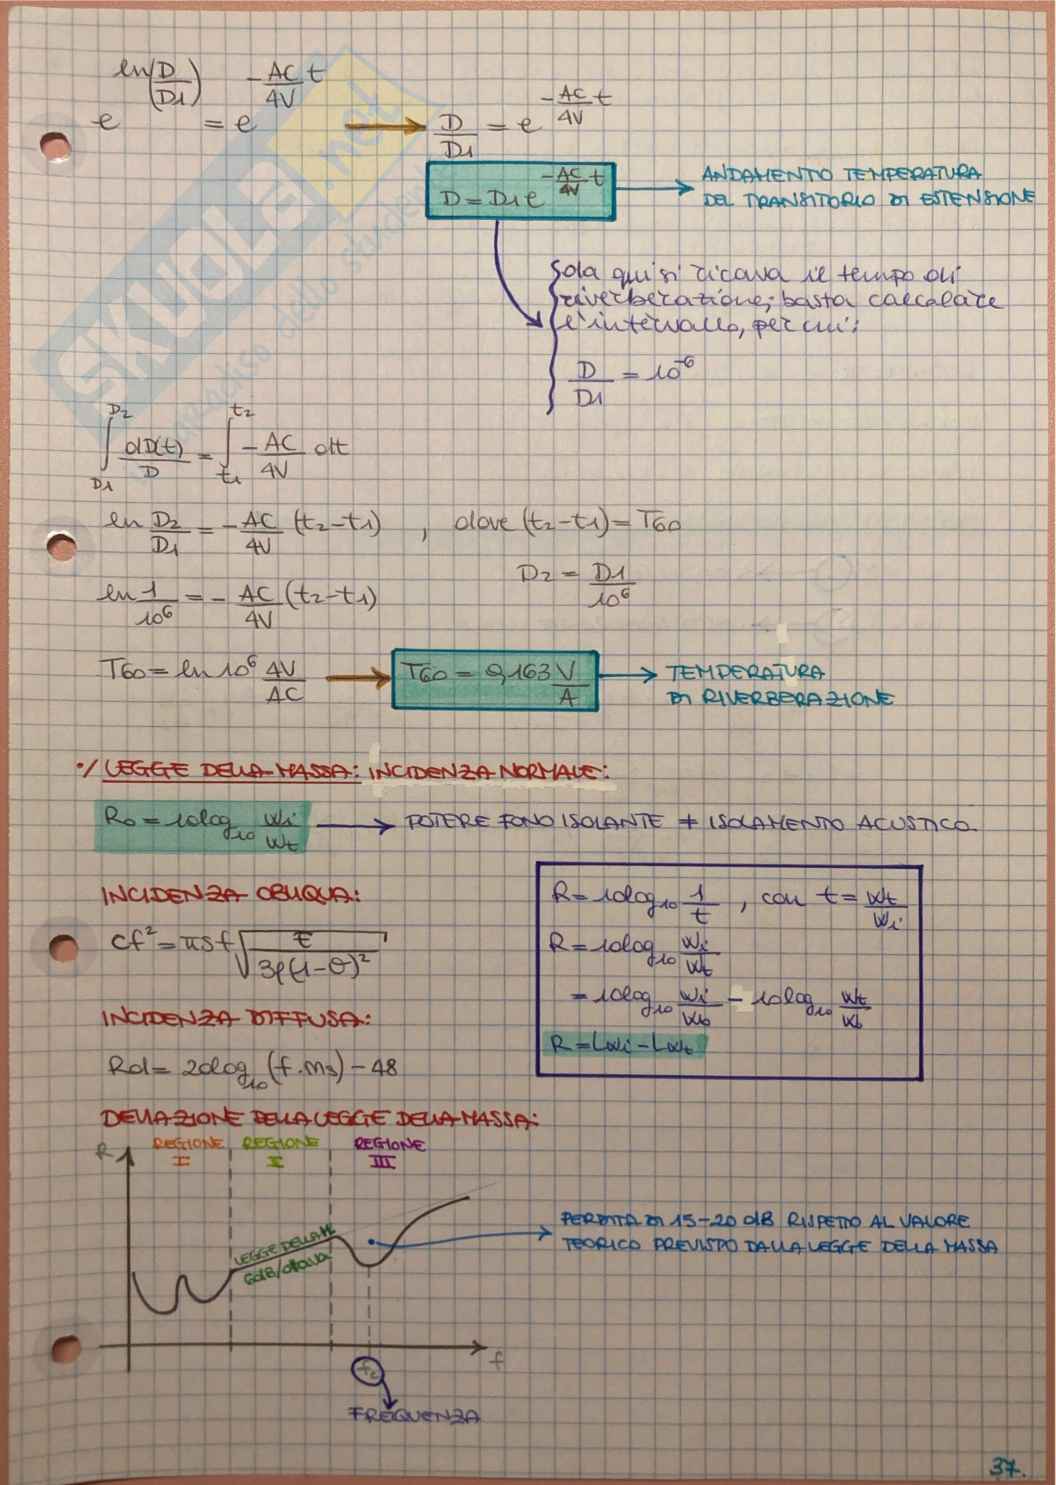 e^{ln(D/D1)} = e^{-AC/4V t} → D/D1 = e^{-AC/4V t}
D = D1 e^{-AC/4V t} → ANDAMENTO TEMPERATURA
DEL TRANSITORIO DI ESTENSIONE
SKUOLA.net
paradiso dello studente
Sola qui si ricava il tempo di
riverberazione; basta calcolare
l'intervallo, per cui:
D/D1 = 10^{-6}
∫_{D1}^{D2} dD(t)/D = ∫_{t1}^{t2} -AC/4V dt
ln D2/D1 = -AC/4V (t2-t1) , dove (t2-t1) = T60
D2 = D1/10^6
ln 1/10^6 = -AC/4V (t2-t1)
T60 = ln 10^6 4V/AC → T60 = 0,163 V/A → TEMPERATURA
DI RIVERBERAZIONE
·/ LEGGE DELLA MASSA: INCIDENZA NORMALE:
R0 = 10log10 Wi/Wt → POTERE FONO ISOLANTE ≠ ISOLAMENTO ACUSTICO.
INCIDENZA OBLIQUA:
Cf² = πsf √(E/3ρ(1-θ)²)
INCIDENZA DIFFUSA:
Rd = 20log10 (f·ms) - 48
R = 10log10 1/t , con t = Wt/Wi
R = 10log10 Wi/Wt
= 10log10 Wi/W0 - 10log10 Wt/W0
R = Lwi - Lwt
DEVIAZIONE DELLA LEGGE DELLA MASSA:
R
REGIONE I
REGIONE II
REGIONE III
LEGGE DELLA M
6dB/ottava
PERDITA DI 15-20 dB RISPETTO AL VALORE
TEORICO PREVISTO DALLA LEGGE DELLA MASSA
f
fc
FREQUENZA
37.